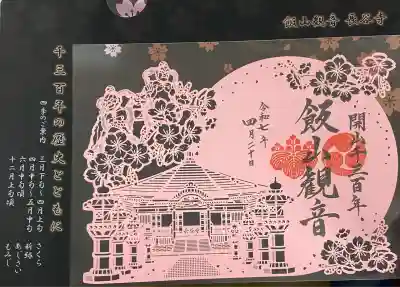 飯山観音 長谷寺
開山千三百年
飯山觀音
令和七年
四月二十日
千三百年の歴史とともに
四季のご案内
三月下旬～四月上旬 さくら
四月中旬～五月中旬 新緑
六月中旬頃 あじさい
十二月上旬頃 もみじ